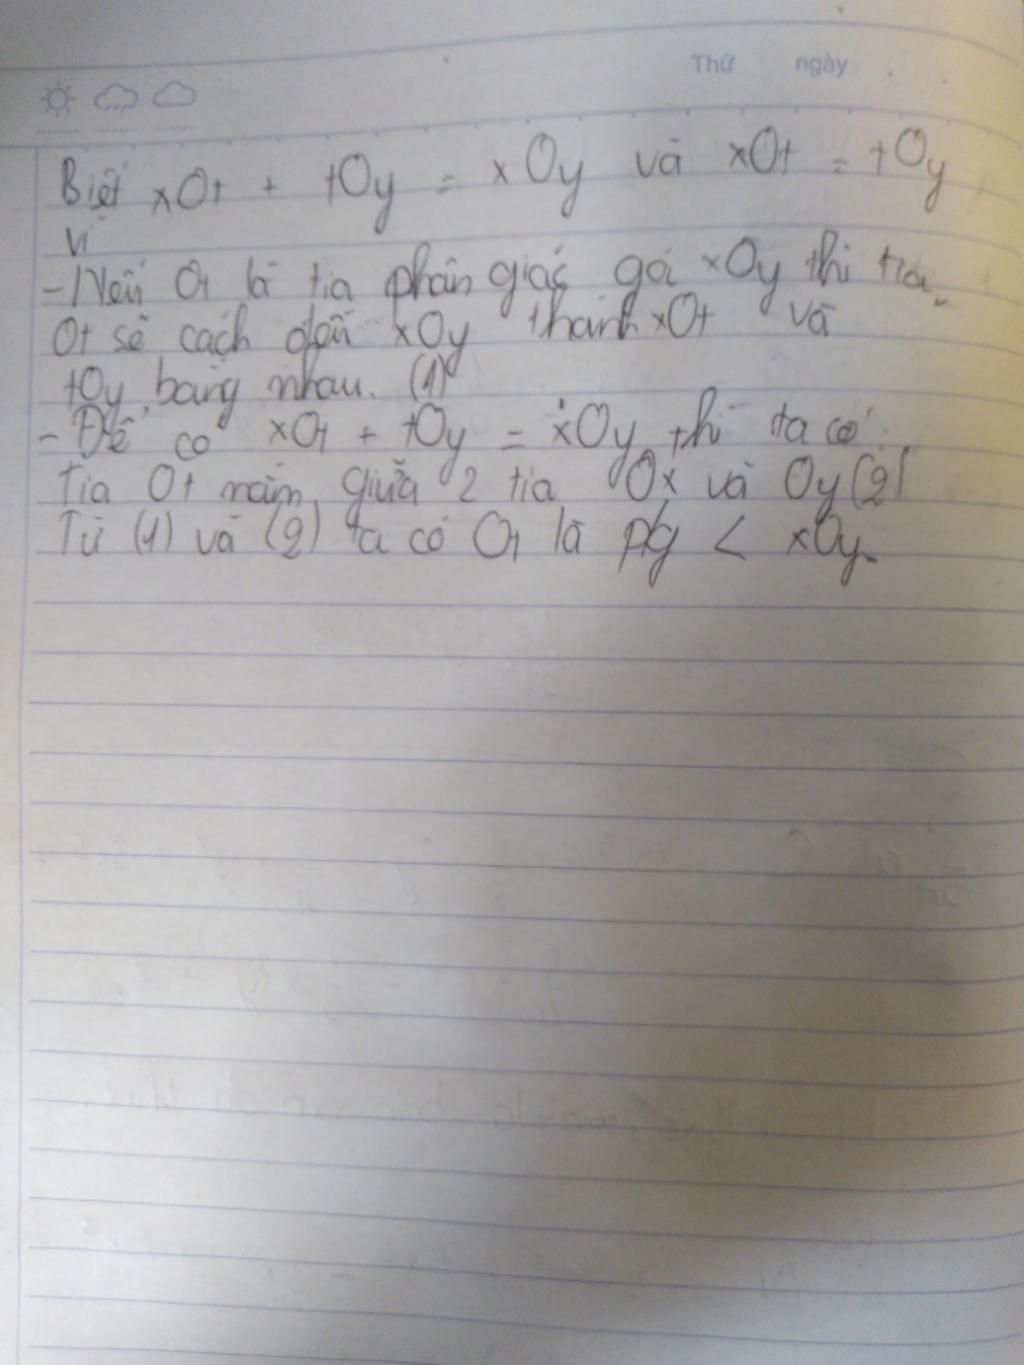 Thứ ngày
Biết xOt + tOy = xOy và xOt = tOy
Vì
- Nếu Ot là tia phân giác gói xOy thì tia
Ot sẽ cách đều xOy thành xOt và
tOy bằng nhau. (1)
- Để có xOt + tOy = xOy thì ta có:
Tia Ot nằm giữa 2 tia Ox và Oy (2)
Từ (1) và (2) ta có Ot là p/g < xOy.